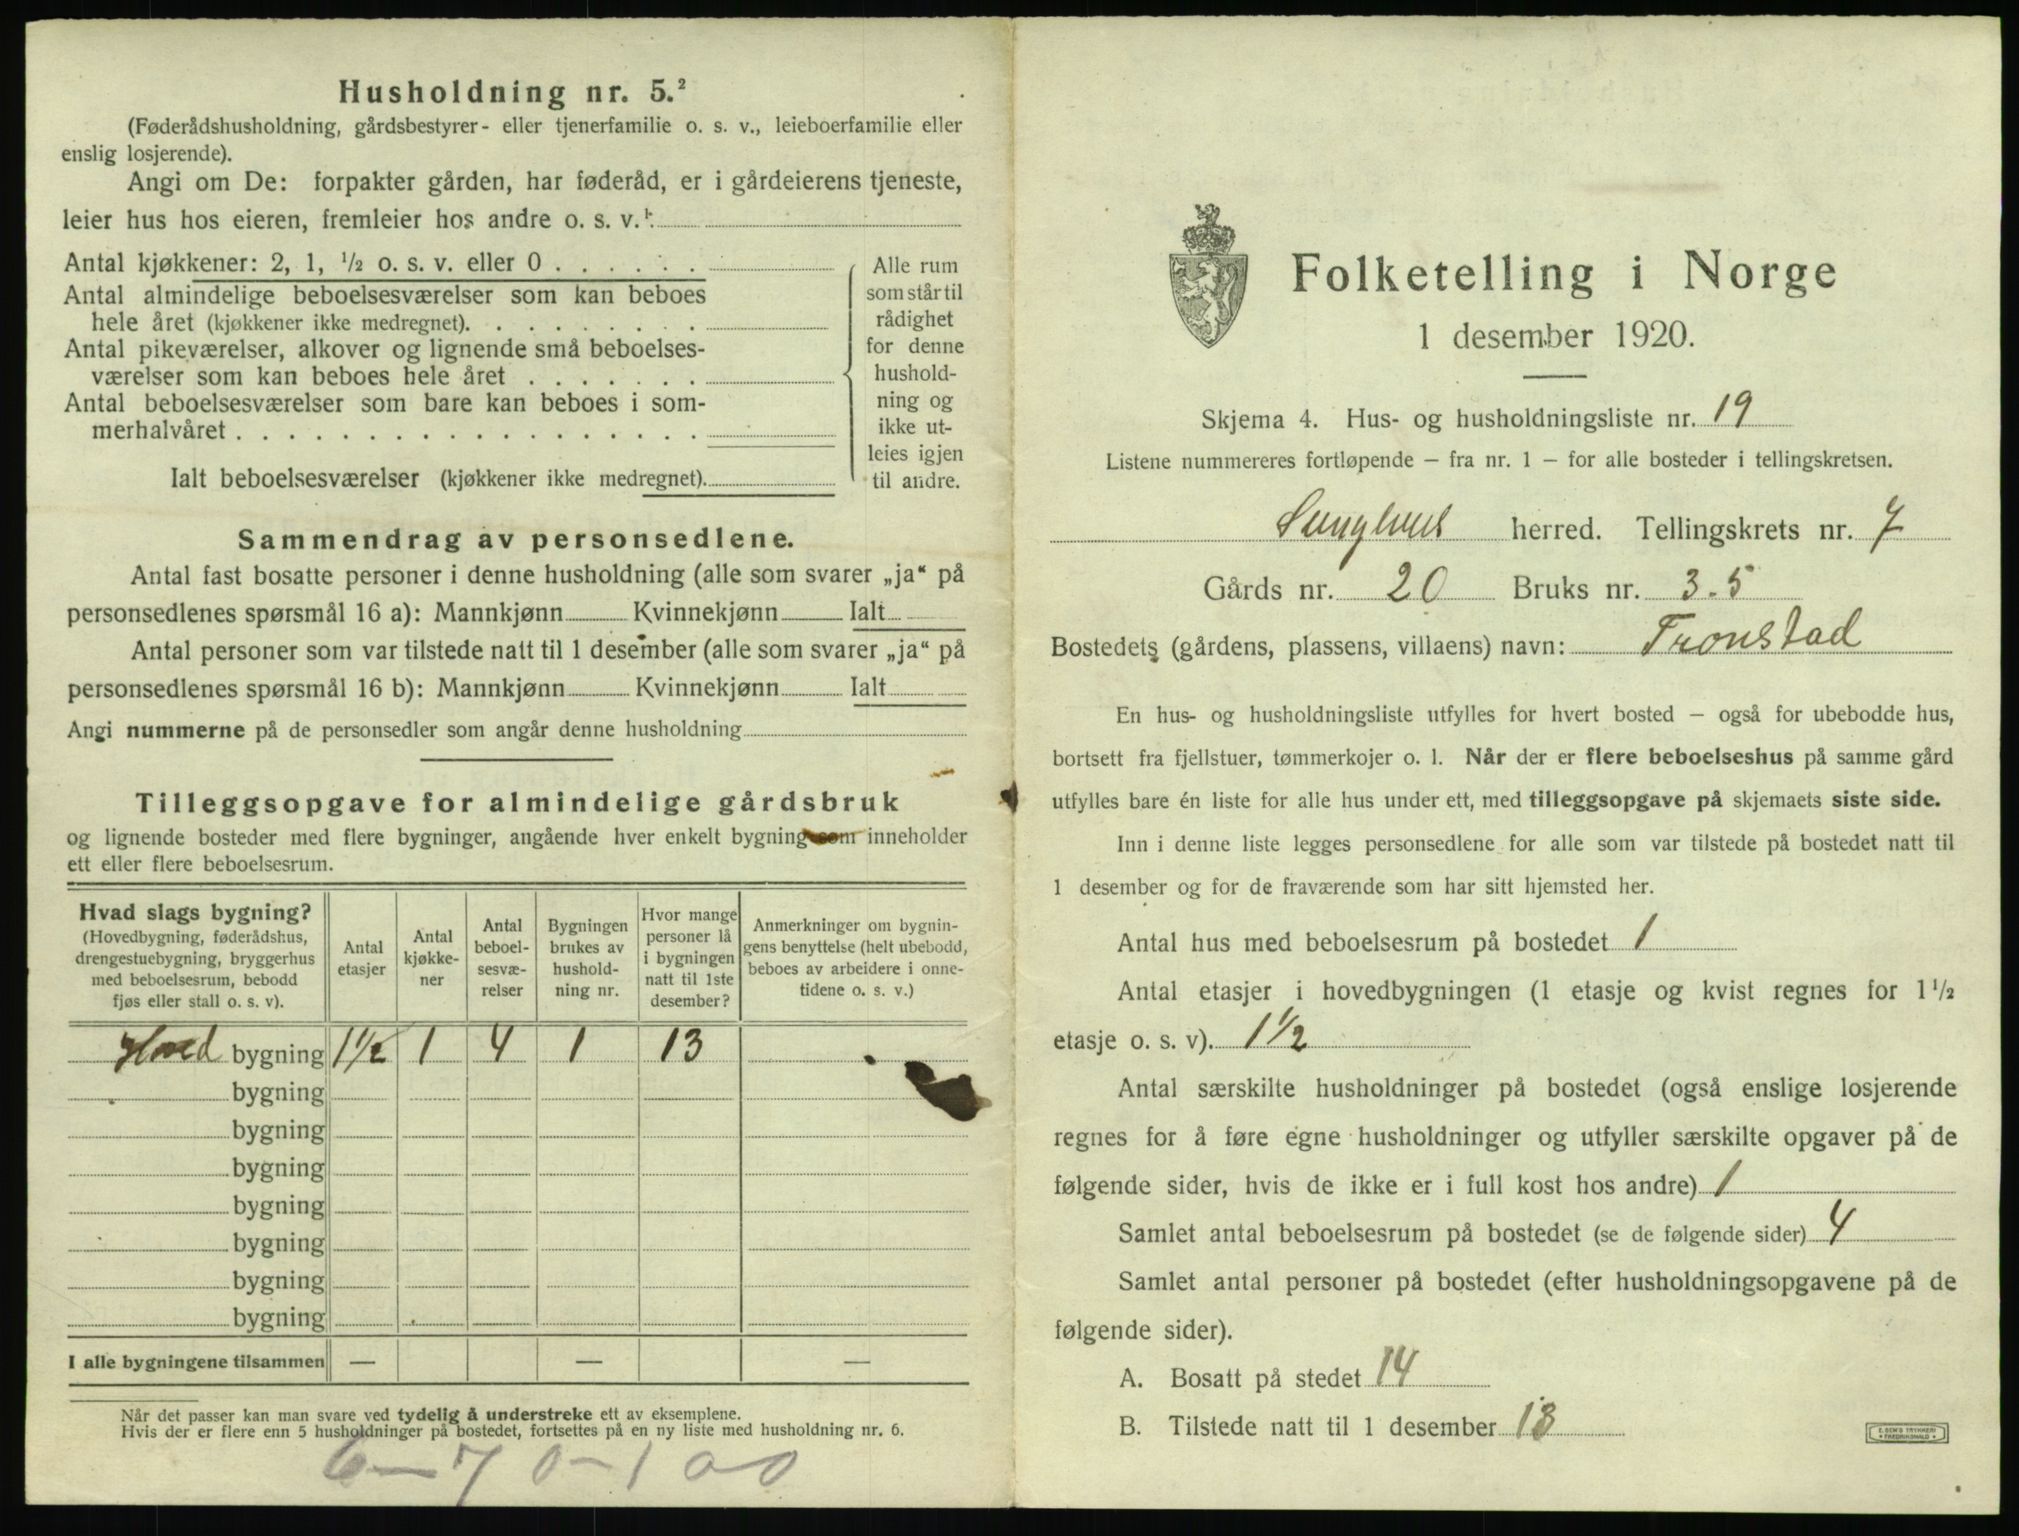 Husholdning nr. 5.²
(Føderådshusholdning, gårdsbestyrer- eller tjenerfamilie o. s. v., leieboerfamilie eller
enslig losjerende).
Angi om De: forpakter gården, har føderåd, er i gårdeierens tjeneste,
leier hus hos eieren, fremleier hos andre o. s. v.¹:
Antal kjøkkener: 2, 1, ½ o. s. v. eller 0
Antal almindelige beboelsesværelser som kan beboes
hele året (kjøkkener ikke medregnet).
Antal pikeværelser, alkover og lignende små beboelses-
værelser som kan beboes hele året
Antal beboelsesværelser som bare kan beboes i som-
merhalvåret
Ialt beboelsesværelser (kjøkkener ikke medregnet).
Alle rum
som står til
rådighet
for denne
hushold-
ning og
ikke ut-
leies igjen
til andre.
Sammendrag av personsedlene.
Antal fast bosatte personer i denne husholdning (alle som svarer „ja“ på
personsedlenes spørsmål 16 a): Mannkjønn Kvinnekjønn Ialt
Antal personer som var tilstede natt til 1 desember (alle som svarer „ja“ på
personsedlenes spørsmål 16 b): Mannkjønn Kvinnekjønn Ialt
Angi nummerne på de personsedler som angår denne husholdning
Tilleggsopgave for almindelige gårdsbruk
og lignende bosteder med flere bygninger, angående hver enkelt bygning som inneholder
ett eller flere beboelsesrum.
Hvad slags bygning?
(Hovedbygning, føderådshus,
drengestuebygning, bryggerhus
med beboelsesrum, bebodd
fjøs eller stall o. s. v).
Antal
etasjer
Antal
kjøkke-
ner
Antal
beboel-
sesvæ-
relser
Bygningen
brukes av
hushold-
ning nr.
Hvor mange
personer lå
i bygningen
natt til 1ste
desember?
Anmerkninger om bygnin-
gens benyttelse (helt ubebodd,
beboes av arbeidere i onne-
tidene o. s. v.)
Hoved bygning 1½ 1 4 1 13
bygning
bygning
bygning
bygning
bygning
bygning
bygning
I alle bygningene tilsammen — — —
Når det passer kan man svare ved tydelig å understreke ett av eksemplene.
Hvis der er flere enn 5 husholdninger på bostedet, fortsettes på en ny liste med husholdning nr. 6.
6—70—100
Folketelling i Norge
1 desember 1920.
Skjema 4. Hus- og husholdningsliste nr. 19
Listene nummereres fortløpende — fra nr. 1 — for alle bosteder i tellingskretsen.
herred. Tellingskrets nr. 7
Gårds nr. 20 Bruks nr. 3-5
Bostedets (gårdens, plassens, villaens) navn: Tronstad
En hus- og husholdningsliste utfylles for hvert bosted — også for ubebodde hus,
bortsett fra fjellstuer, tømmerkojer o. l. Når der er flere beboelseshus på samme gård
utfylles bare én liste for alle hus under ett, med tilleggsopgave på skjemaets siste side.
Inn i denne liste legges personsedlene for alle som var tilstede på bostedet natt til
1 desember og for de fraværende som har sitt hjemsted her.
Antal hus med beboelsesrum på bostedet 1
Antal etasjer i hovedbygningen (1 etasje og kvist regnes for 1½
etasje o. s. v). 1½
Antal særskilte husholdninger på bostedet (også enslige losjerende
regnes for å føre egne husholdninger og utfyller særskilte opgaver på de
følgende sider, hvis de ikke er i full kost hos andre) 1
Samlet antal beboelsesrum på bostedet (se de følgende sider) 4
Samlet antal personer på bostedet (efter husholdningsopgavene på de
følgende sider).
A. Bosatt på stedet 14
B. Tilstede natt til 1 desember 13